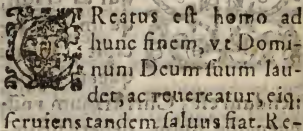 CReatus eſt homo ad
hunc finem, vt Domi-
num Deum ſuum lau-
det, ac reuereatur, eiq;
ſeruiens tandem ſaluus fiat. Re-